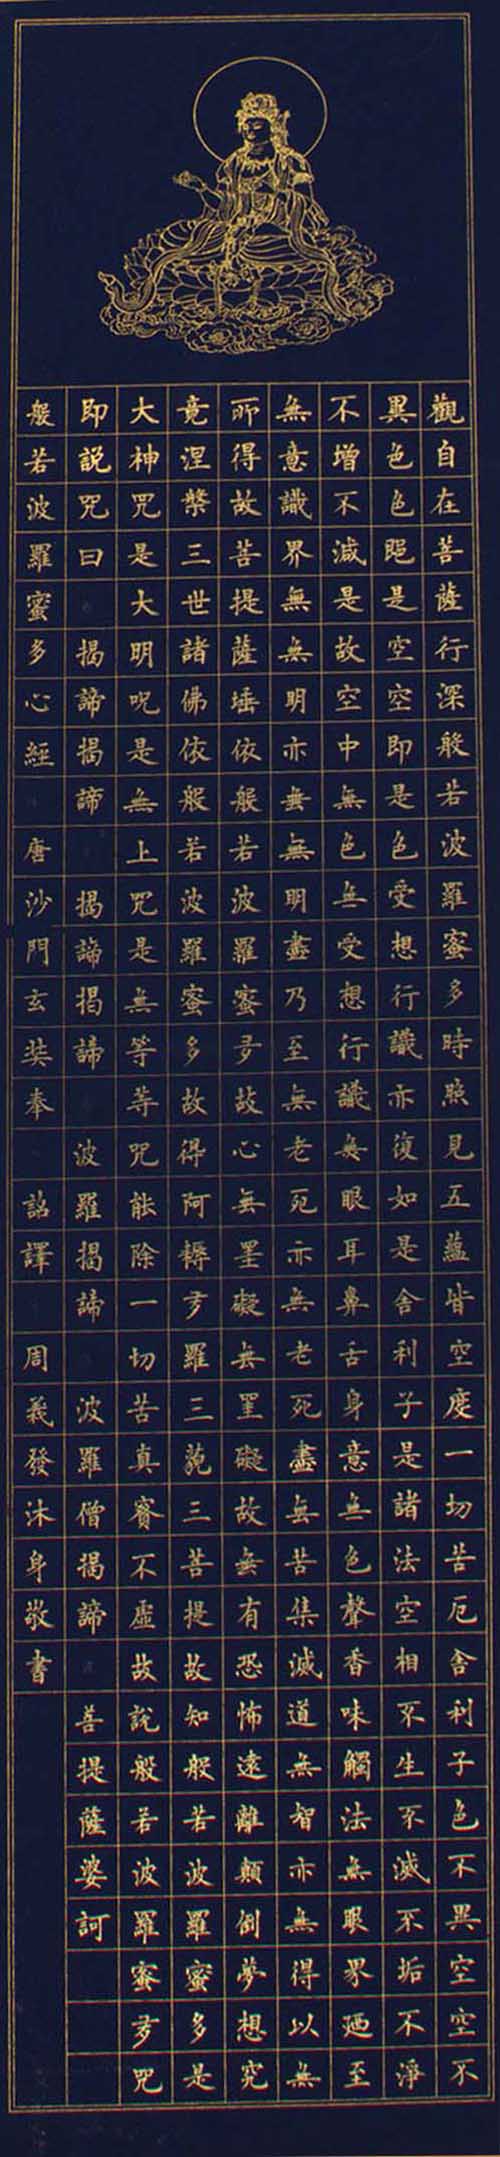 觀自在菩薩行深般若波羅蜜多時照見五蘊皆空度一切苦厄舍利子色不異空空不
異色色即是空空即是色受想行識亦復如是舍利子是諸法空相不生不滅不垢不淨
不增不減是故空中無色無受想行識無眼耳鼻舌身意無色聲香味觸法無眼界廼至
無意識界無無明亦無無明盡乃至無老死亦無老死盡無苦集滅道無智亦無得以無
所得故菩提薩埵依般若波羅蜜多故心無罣礙無罣礙故無有恐怖遠離顛倒夢想究
竟涅槃三世諸佛依般若波羅蜜多故得阿耨多羅三藐三菩提故知般若波羅蜜多是
大神咒是大明呪是無上咒是無等等咒能除一切苦真實不虛故說般若波羅蜜多咒
即説咒曰 揭諦揭諦 揭諦揭諦 波羅揭諦 波羅僧揭諦 菩提薩婆訶
般若波羅蜜多心經 唐沙門玄奘奉 詔譯 周義發沐身敬書